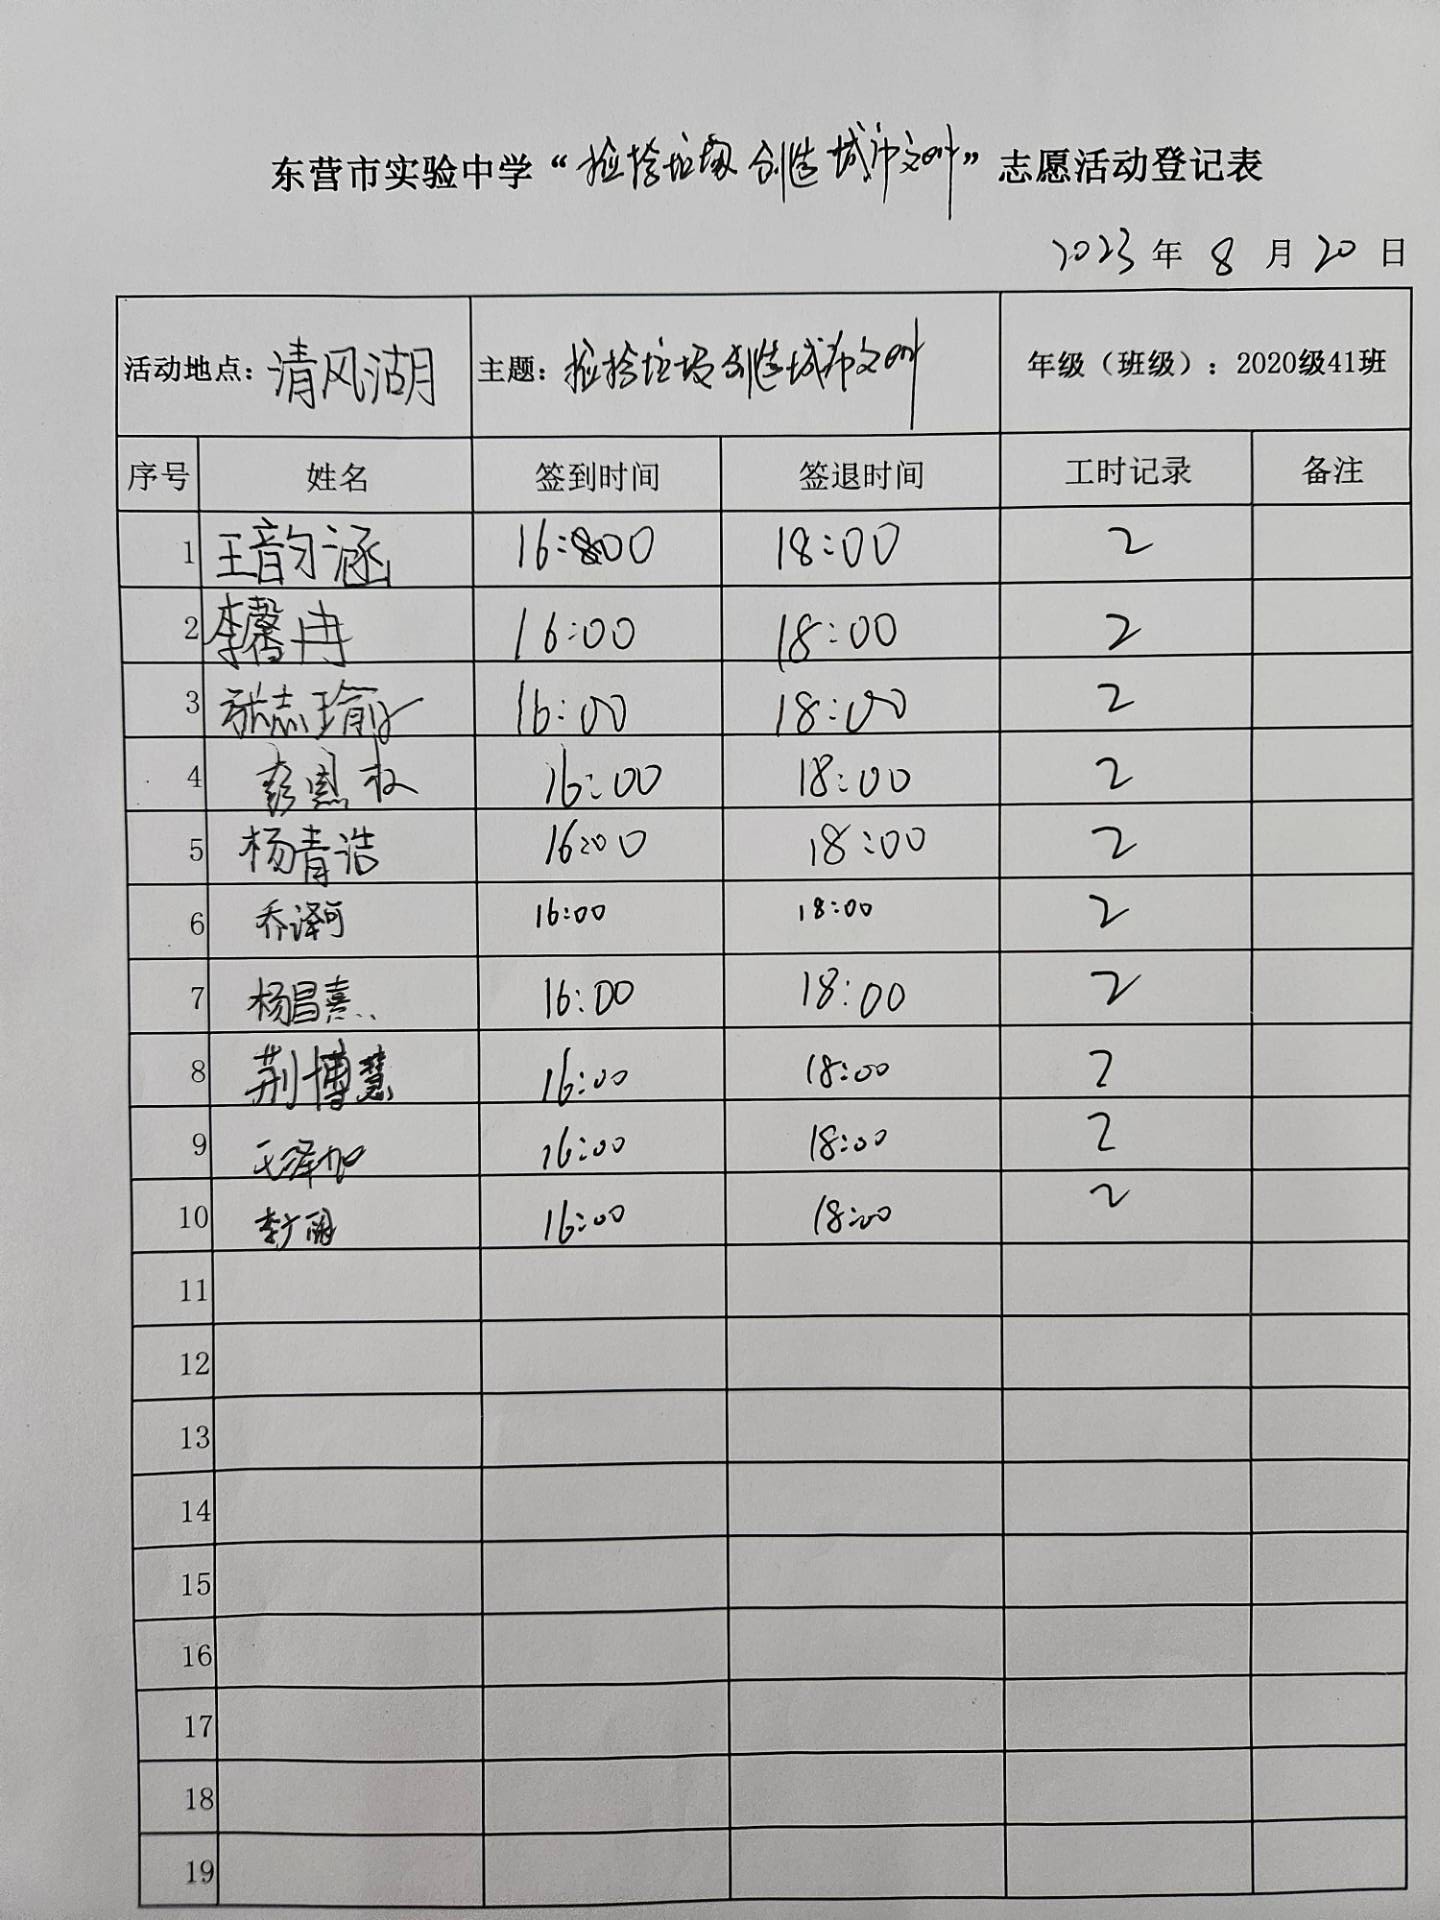 东营市实验中学“捡拾垃圾 创造城市文明”志愿活动登记表
2023 年 8 月 20 日
活动地点：清风湖 主题：捡拾垃圾创造城市文明 年级（班级）：2020级41班
序号 姓名 签到时间 签退时间 工时记录 备注
1 王韵涵 16:00 18:00 2
2 李馨冉 16:00 18:00 2
3 张志瑜 16:00 18:00 2
4 彭恩权 16:00 18:00 2
5 杨青浩 16:00 18:00 2
6 乔泽可 16:00 18:00 2
7 杨昌熹 16:00 18:00 2
8 荆博慧 16:00 18:00 2
9 王泽加 16:00 18:00 2
10 李广 16:00 18:00 2
11
12
13
14
15
16
17
18
19